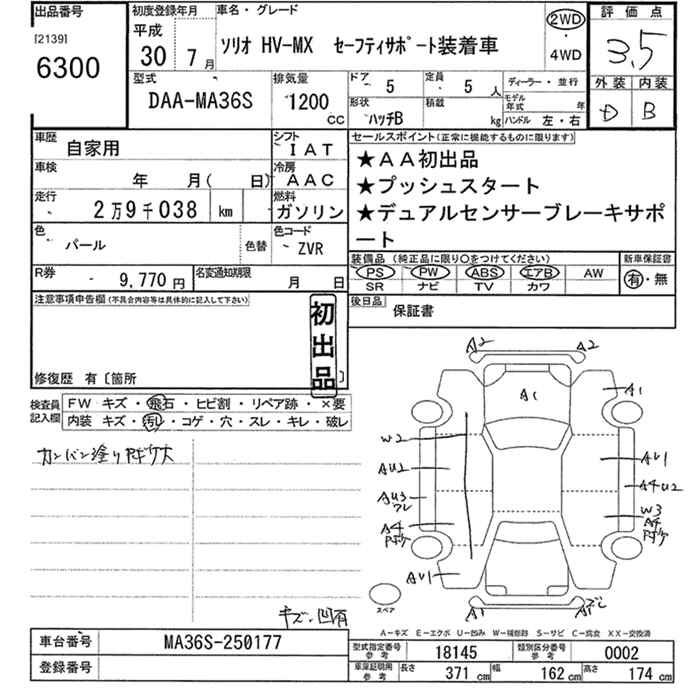 出品番号
[2139]
6300
初度登録年月
平成
30年
7月
車名・グレード
ソリオ HV-MX セーフティサポート装着車
2WD
・
4WD
評価点
3,5
外装 内装
D B
型式
DAA-MA36S
排気量
1200
CC
ドア
5
定員
5人
形状
ハッチB
積載
kg
ディーラー・並行
モデル年式 年
ハンドル 左・右
車歴
自家用
シフト
IAT
車検
年 月( 日)
冷房
AAC
走行
2万9千038 km
燃料
ガソリン
色
パール
色替
色コード
ZVR
R券
9,770円
名変通知期限
月 日
セールスポイント(正常に機能するものに限ります)
★AA初出品
★プッシュスタート
★デュアルセンサーブレーキサポ
ート
装備品 (純正品に限り○をつけてください)
PS PW ABS エアB AW
SR ナビ TV カワ
新車保証書
有・無
後日品
保証書
注意事項申告欄(不具合内容等は具体的に記入して下さい)
初出品
修復歴 有〔箇所 〕
検査員記入欄
FW キズ・飛石・ヒビ割・リペア跡・×要
内装 キズ・汚れ・コゲ・穴・スレ・キレ・破レ
キズ、凹有
A2 A2
A1 A1
W2
AU2
AU3
A4
AU1
AU1
A4U2
W3
A4
A1
スペア
A-キズ E-エクボ U-凹み W-補修跡 S-サビ C-腐食 XX-交換済
車台番号
MA36S-250177
登録番号
型式指定番号
参考
18145
類別区分番号
参考
0002
車庫証明用
参考
長さ 371 cm 幅 162 cm 高さ 174 cm